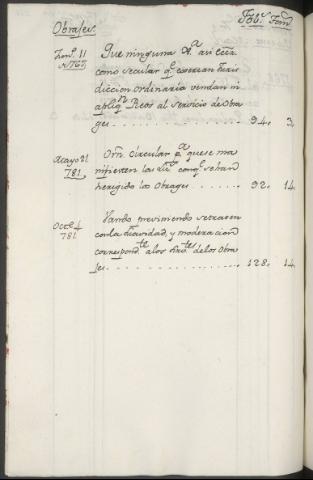 Obrajes. Fol.s Tom.
Jun.o 11 Que ninguna
1767 como secular q.e exerzan Juris
diccion ordinaria vendan ni
apliq.n Reos al servicio de Obra
ges . . . . . . . . . . . . 94. 3.
Mayo 21 Orn. Circular p.a que se ma
781 nifiesten las Lic.s con q.e se han
heregido los Obrages . . . . . . 92. 14.
Oct.e 4 Vando previniendo se traten
781 con la suavidad, y moderacion
correspond.te a los sirv.tes de los Obra
jes . . . . . . . . . . . . 128. 14.